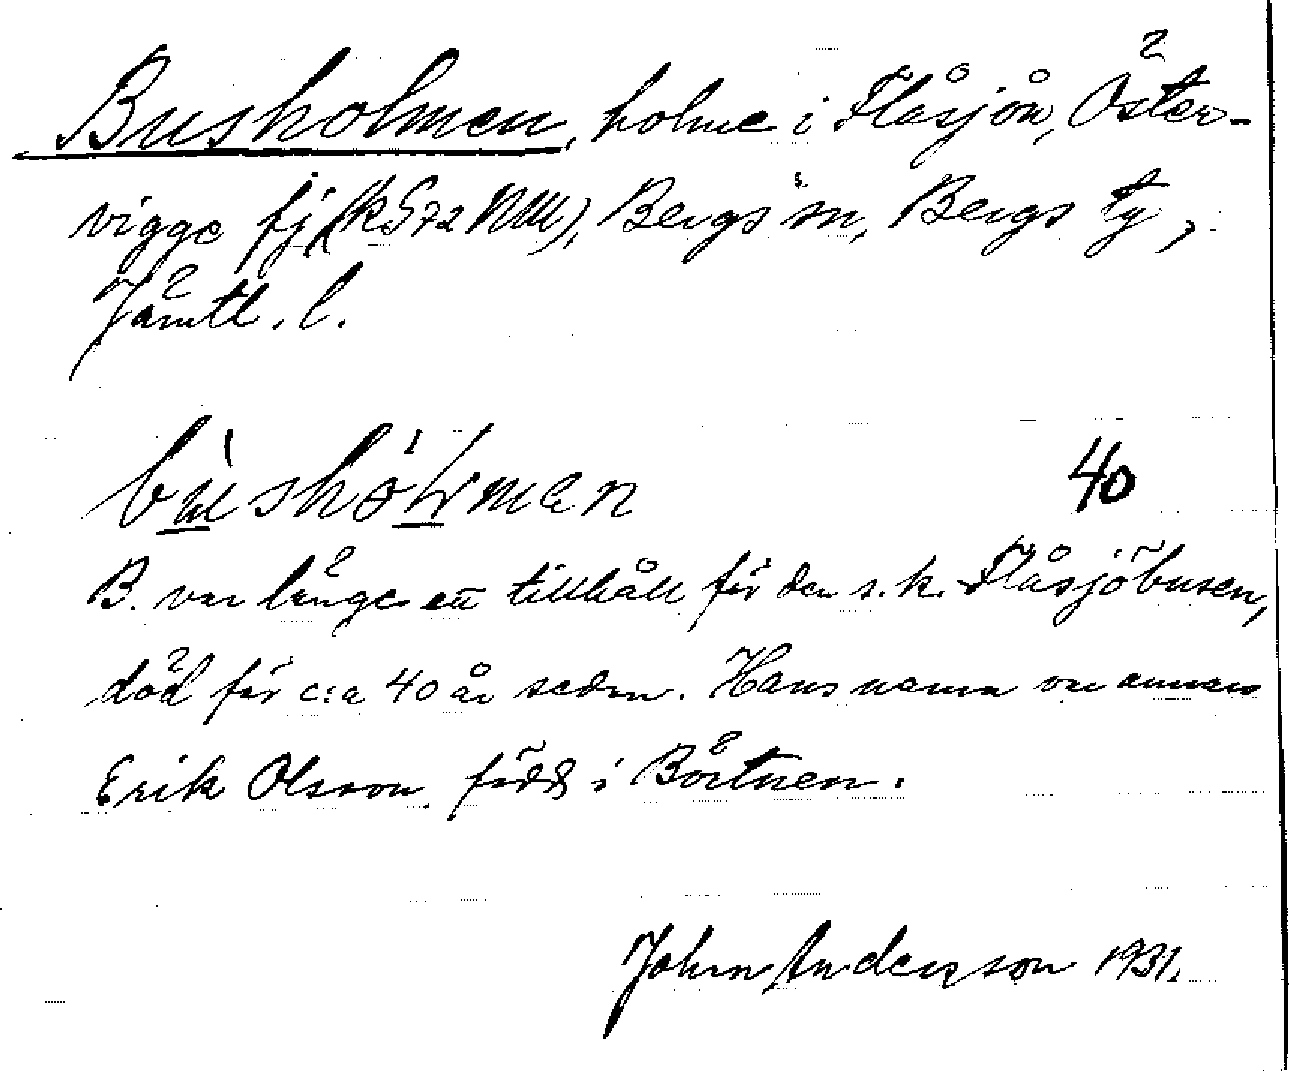 Busholmen, holme i Flåsjön, Öster-
vigge fj (k 572 NM), Bergs sn, Bergs tg,
Jämtl. l.
40
B. var länge ett tillhåll för den s.k. Flåsjöbusen,
död för c:a 40 år sedan. Hans namn var annars
Erik Olsson, född i Börtnen.
John Andersson 1931.